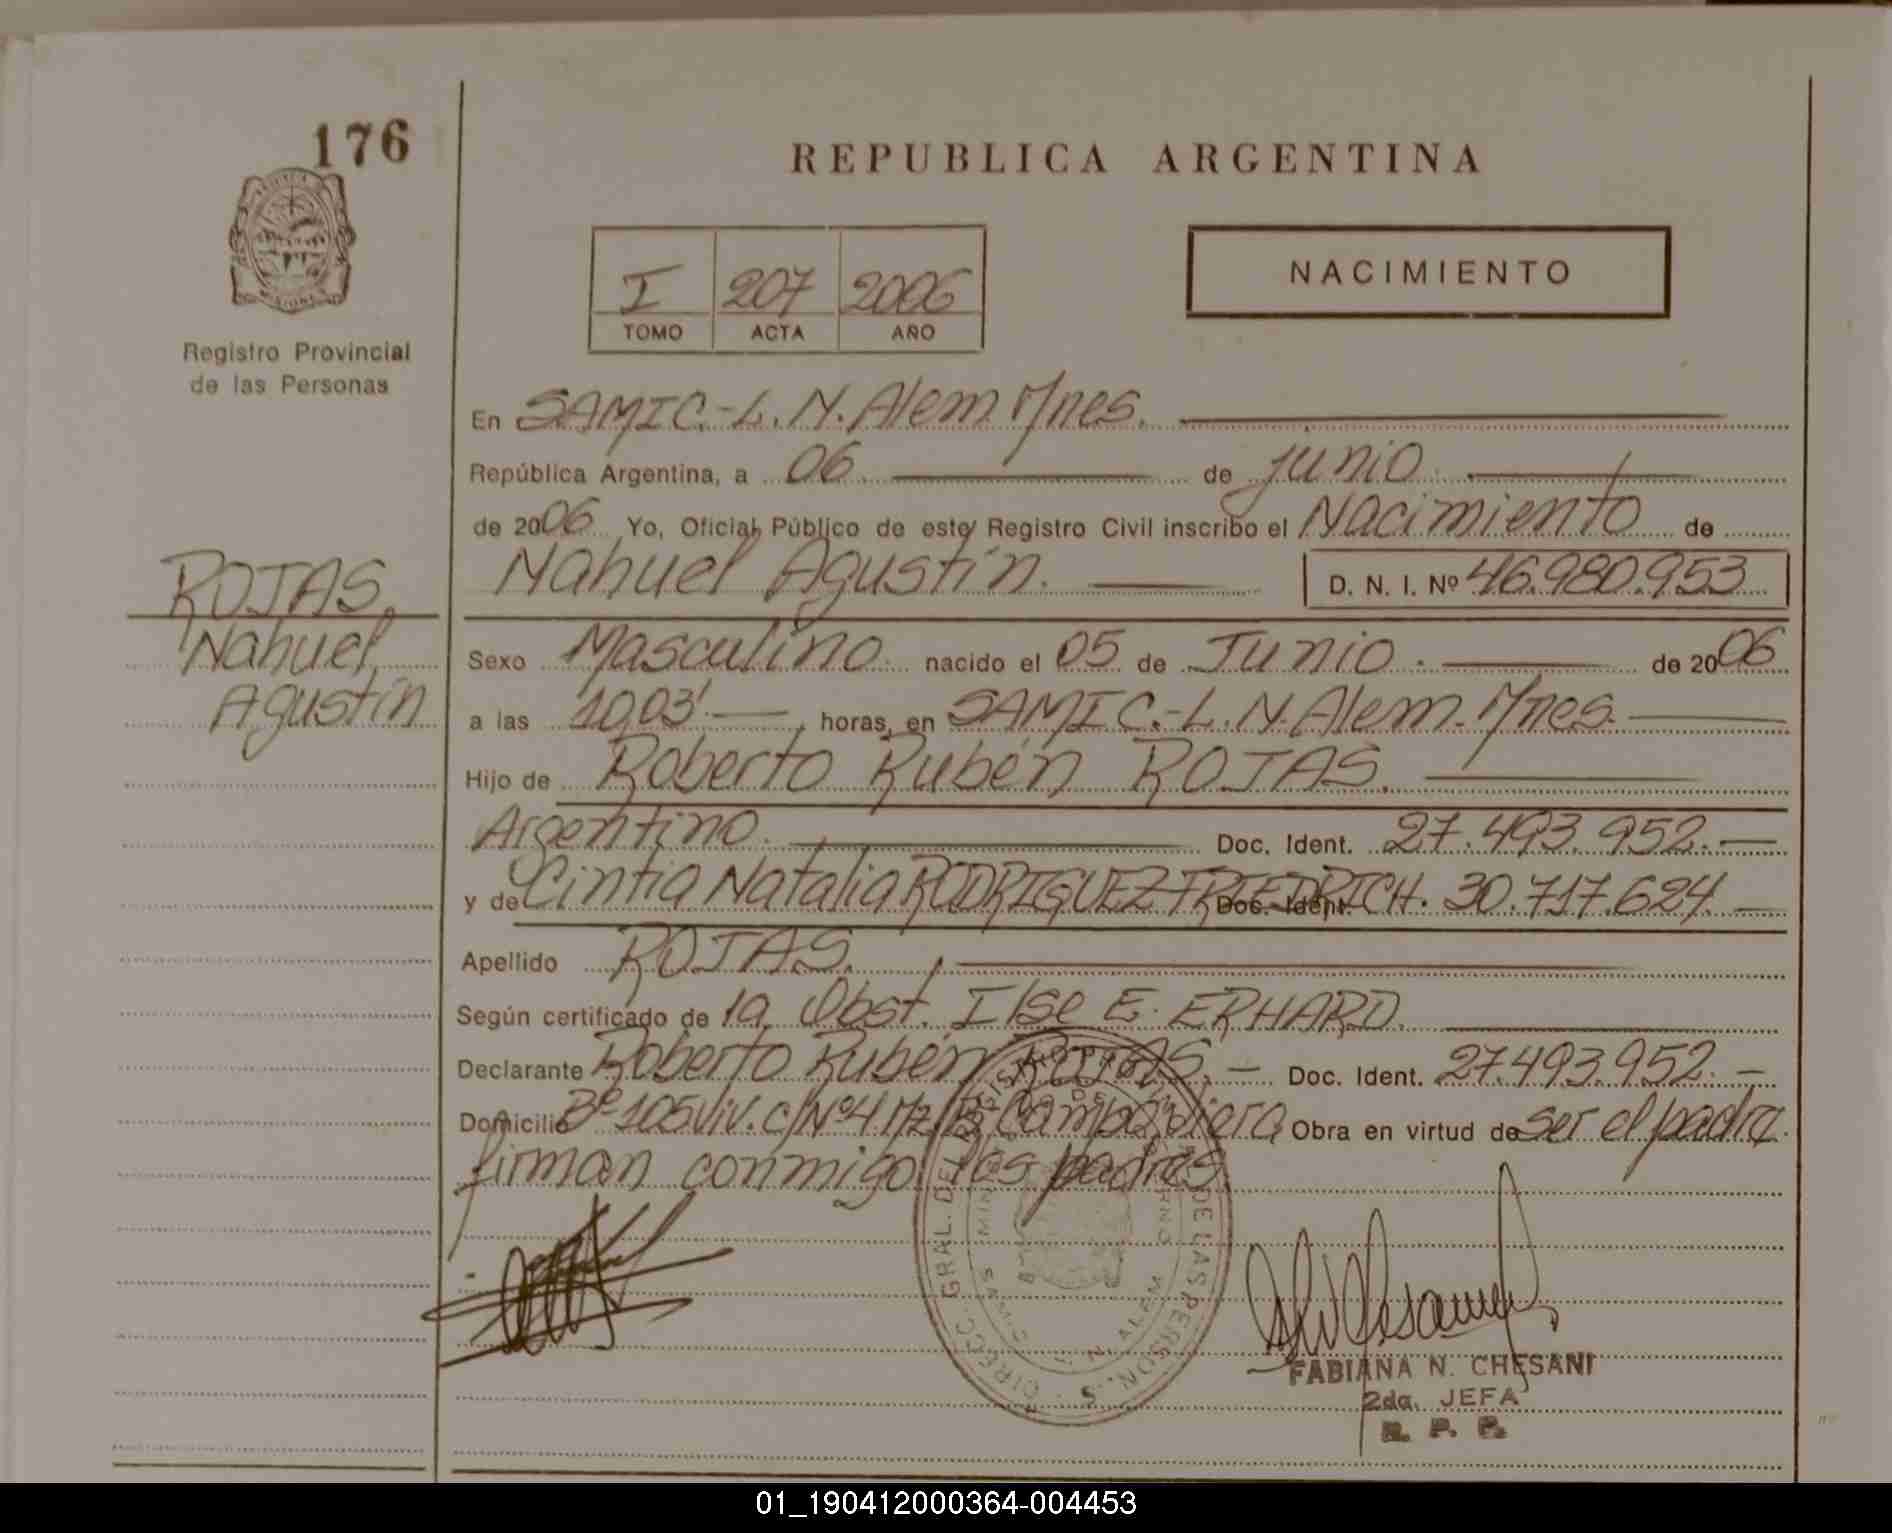 176
REPUBLICA ARGENTINA
I 207 2006
TOMO ACTA AÑO
NACIMIENTO
Registro Provincial
de las Personas
En SAMIC.-L.N.Alem Mnes.
República Argentina, a 06 de junio.
de 2006 Yo, Oficial Público de este Registro Civil inscribo el Nacimiento de
Nahuel Agustín. D. N. I. Nº 46.980.953
ROJAS,
Nahuel
Agustín
Sexo Masculino. nacido el 05 de Junio. de 2006
a las 10,03' horas, en SAMIC.-L.N.Alem.Mnes.
Hijo de Roberto Rubén ROJAS.
Argentino. Doc. Ident. 27.493.952.-
y de Cintia Natalia RODRIGUEZ FRIEDRICH. Doc. Ident. 30.717.624.-
Apellido ROJAS.
Según certificado de la Obst. Ilse E. ERHARD.
Declarante Roberto Rubén ROJAS.- Doc. Ident. 27.493.952.-
Domicilio Bº 105 Viv. c/Nº4 Mz. Obra en virtud de ser el padre.
firman conmigo los padres
DIRECC. GRAL. DEL REGISTRO DE LAS PERSONAS
SAMIC L. N. ALEM
FABIANA N. CHESANI
2da. JEFA
R. P. P.
01_190412000364-004453